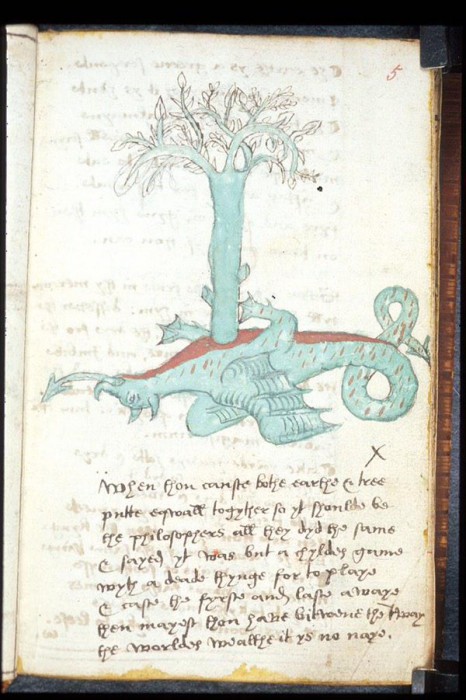 5
X
When thou canste bothe earthe & tree
putte eqwall togyther so yt shoulde be
the philosophers all they dyd the same
& sayed yt was but a chyldes game
wyth a deade thynge for to playe
& caste the fyrste and laste awaye
then mayest thou have bitwene the tway
the worldes wealthe it ys no naye.